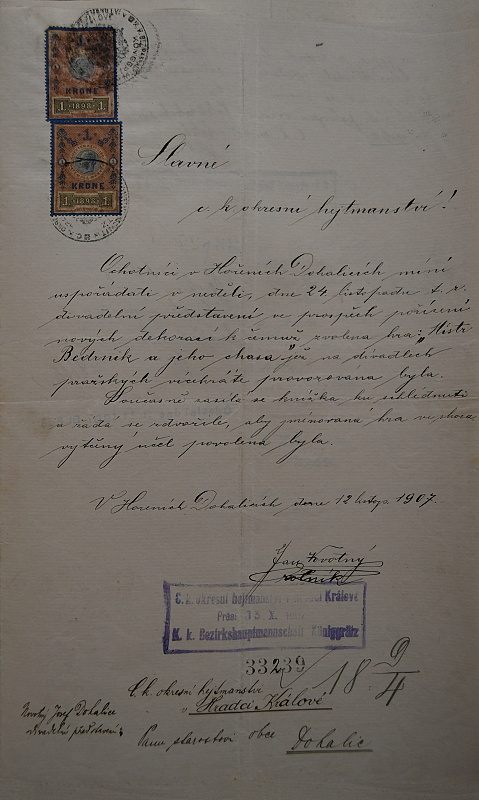 1
KRONE
1 1898 1
1
KRONE
1 1898 1
Slavné
c. k. okresní hejtmanství!
Ochotníci v Hořeních Dohalicích míní
uspořádati v neděli, dne 24. listopadu t. r.
divadelní představení ve prospěch pořízení
nových dekorací k čemuž zvolena hra: "Mistr
Bedrník a jeho chasa" jež na divadlech
pražských vícekráte provozována byla.
Současně zasílá se knížka ku shlédnutí
a žádá se zdvořile, aby jmenovaná hra ve shora
vytčený účel povolena byla.
V Hořeních Dohalicích dne 12 listop. 1907.
Jan
rolník
C. k. okresní hejtmanství v Hradci Králové
K. k. Bezirkshauptmannschaft Königgrätz
33239
18 D/4
C. k. okresní hejtmanství
v Hradci Králové
Novotný Josef Dohalice
divadelní představení
Panu starostovi obce Dohalic